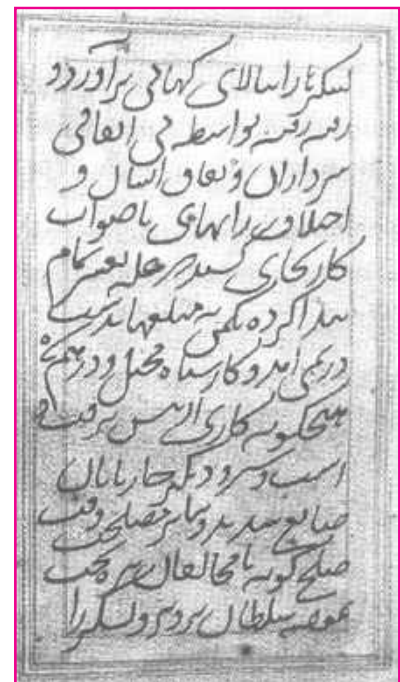 لشکر را ببالای کهاتی برآورد و
رفته رفته بواسطه بی اتفاقی
سرداران و نفاق ایشان و
اختلاف رایهای ناصواب
کار بجای رسید که غله بعسر تمام
پیدا کرده یکمن به مبلغها بدست
در نمی آمد و کار سپاه مختل و درهم
هیچگونه کاری از پیش نرفت و
اسب و شتر و دیگر چارپایان
ضایع شدند و بنابر مصلحت وقت
صلح گونه با مخالفان کرده
سلطان پرویز و لشکر را